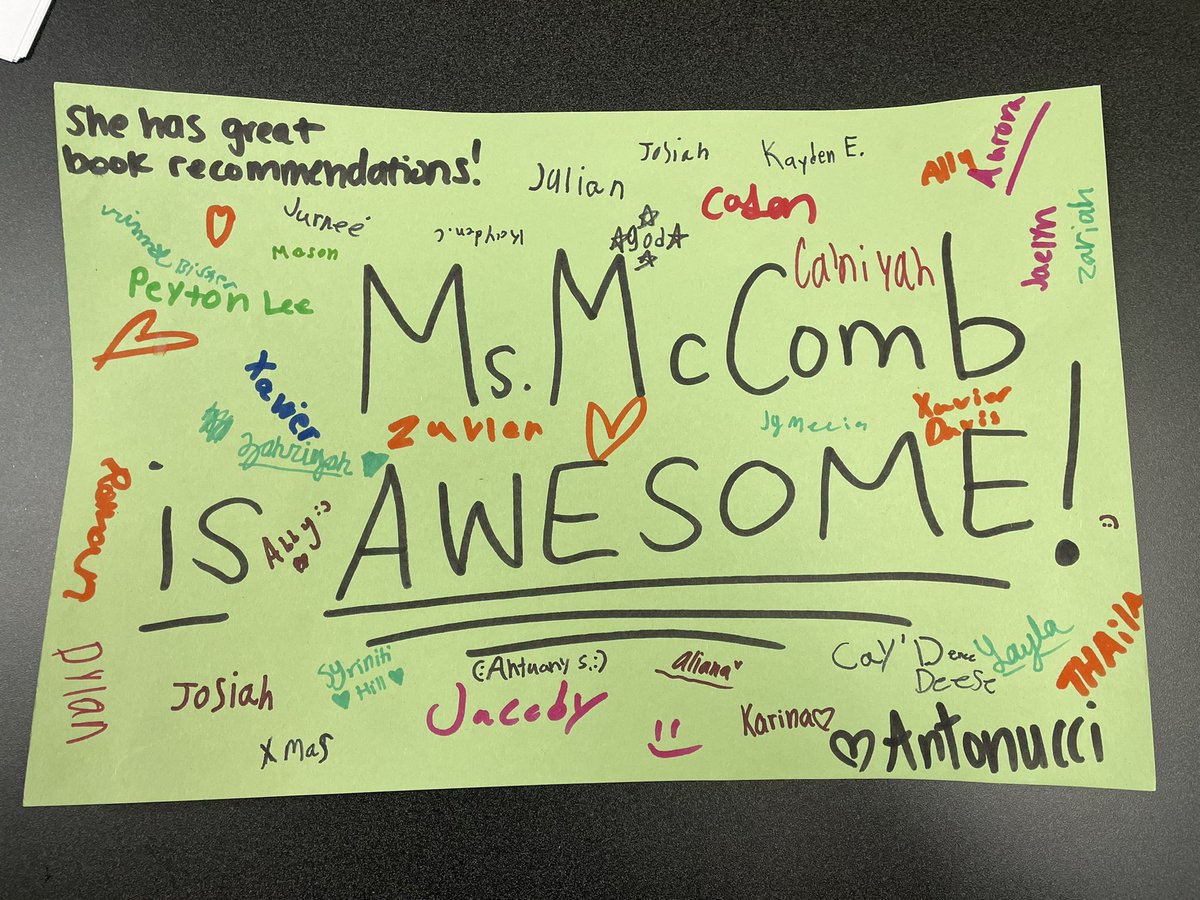 She has great
book recommendations!
Julian
Josiah
Kayden E.
Ally
Aurora
Jurneé
Mason
Kayden.C
Cason
Ca'niyah
Jaelyn
Zariah
Peyton Lee
Ms. McComb
Xavier
Zavier
Xavier
Davis
Zahriyah
Roman
is AWESOME!
Abby :)
:)
Dylan
Josiah
Syriniti
Hill
(:Antuany S.:)
Aliana
Cay'Dence
Deese
Layla
THAila
Jacoby
Karina
Antonucci
X Mas